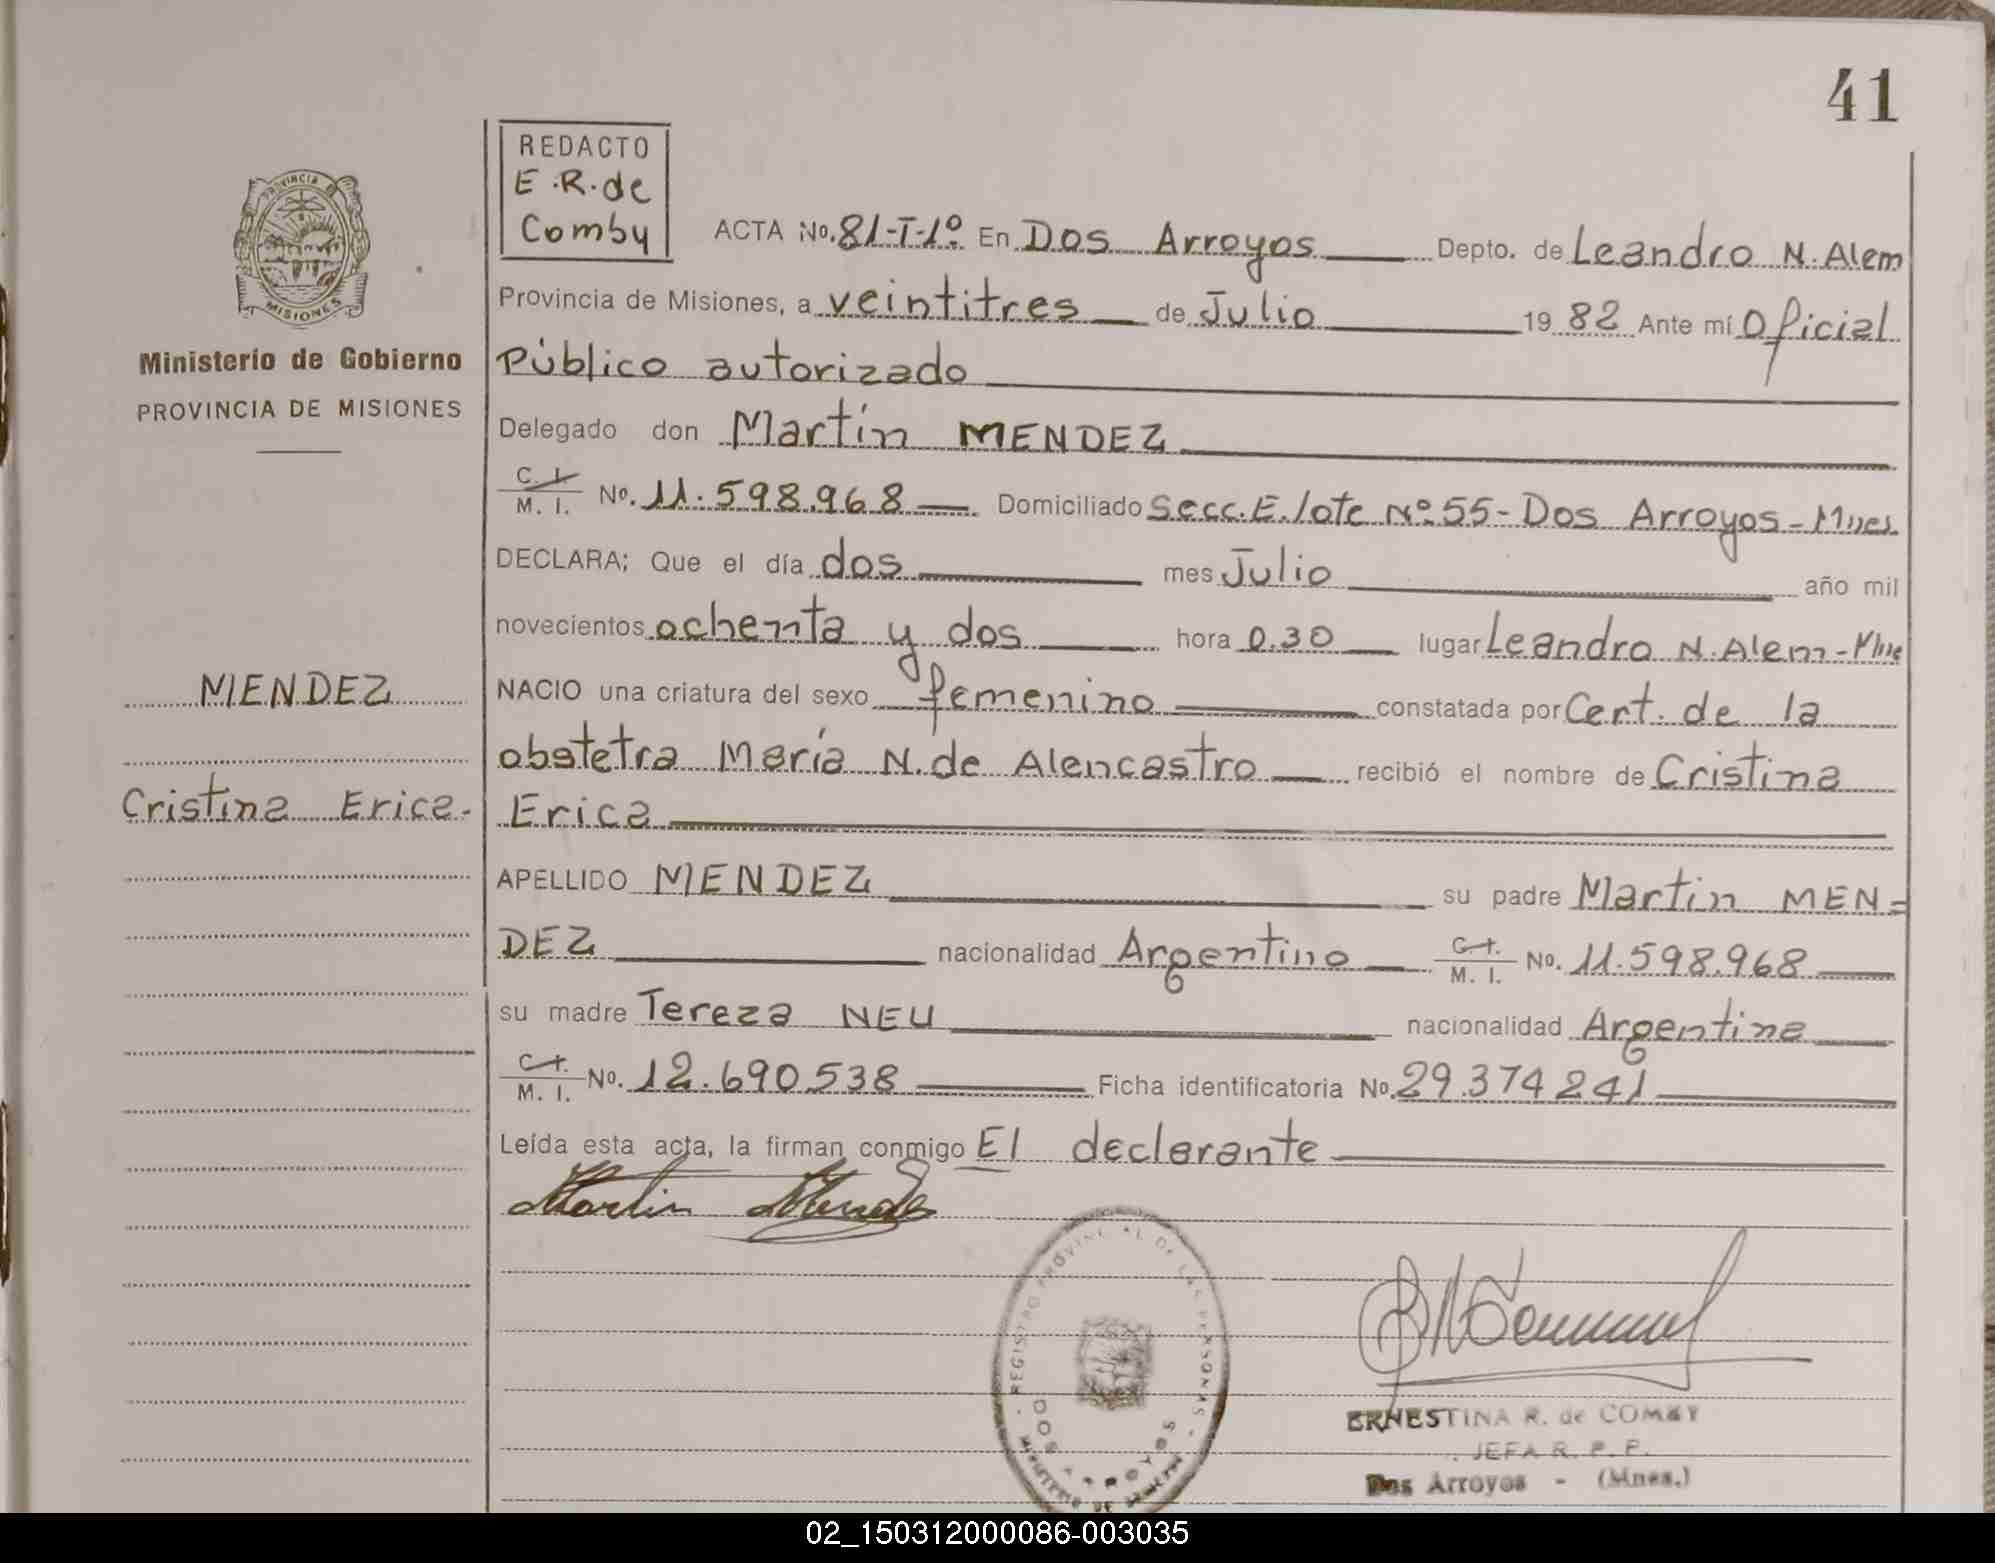 41
REDACTO
E.R. de
Comby
PROVINCIA DE
MISIONES
Ministerio de Gobierno
PROVINCIA DE MISIONES
ACTA No. 81-I-1º En Dos Arroyos Depto. de Leandro N. Alem
Provincia de Misiones, a veintitres de Julio 19 82 Ante mí Oficial
Público autorizado
Delegado don Martín MENDEZ
C. I.
M. I. No. 11.598.968 Domiciliado Secc. E. lote Nº 55 - Dos Arroyos - Mnes.
DECLARA; Que el día dos mes Julio año mil
novecientos ochenta y dos hora 0.30 lugar Leandro N. Alem - Mne
MENDEZ
NACIO una criatura del sexo femenino constatada por Cert. de la
obstetra María N. de Alencastro recibió el nombre de Cristina
Cristina Erica.
Erica
APELLIDO MENDEZ su padre Martin MEN=
DEZ nacionalidad Argentino C. I.
M. I. No. 11.598.968
su madre Tereza NEU nacionalidad Argentina
C. I.
M. I. No. 12.690.538 Ficha identificatoria No. 29.374241
Leída esta acta, la firman conmigo El declarante
Martin Mendez
- REGISTRO PROVINCIAL DE LAS PERSONAS -
DOS ARROYOS
MINISTERIO DE GOBIERNO
ERNESTINA R. de COMBY
JEFA R. P. P.
Dos Arroyos - (Mnes.)
02_150312000086-003035